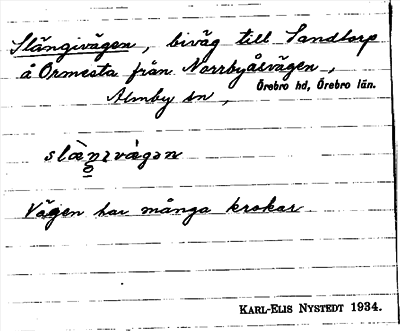 Slängivägen, biväg till Sandtorp
å Ormesta från Norrbyåsvägen,
Almby sn, Örebro hd, Örebro län.
Vägen har många krokar
KARL-ELIS NYSTEDT 1934.